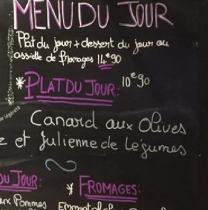 MENU DU JOUR
Plat du jour + dessert du jour ou
assiette de fromages 14€90
*PLAT DU JOUR: 10€90
Canard aux Olives
et Julienne de Légumes
DU JOUR:
* FROMAGES:
aux Pommes